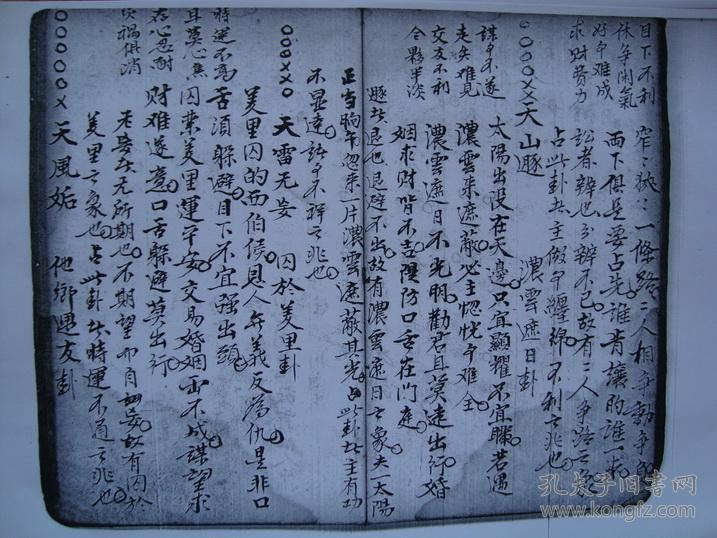 目下不利
休争闲氣
好事难成
求财劳力
窄〻狹〻一條路二人相争
兩下俱是要占先谁肯讓的谁一步
訟者辨也分辨不已故有二人争路之象
占此卦者主做事纏綿不利之兆也
○○○○××天山豚 濃雲遮日卦
太陽出没在天邉只宜顕耀不宜勝若遇
濃雲来遮蔽必主惚恍事难全
濃雲遮日不光明勸君且莫逺出行婚
姻求财皆不吉隄防口舌在门庭
謀事不遂
走失难見
交友不利
合夥半次
豚者退也退避不出故有濃雲遮日之象夫一太陽
正当晌午忽来一片濃雲遮蔽其光占此卦者主有功
不显達諸事不祥之兆也
○○○××○天雷无妄 囚於羑里卦
羑里囚的西伯侯恩人無義反為仇是非口
舌須躲避目下不宜强出頭
囚禁羑里運平安交易婚姻亦不成謀望求
财难遂意口舌躲避莫出行
時運不高
耳莫心焦
存心忍耐
災禍俱消
无妄者无所期也不期望而自妄故有囚於
羑里之象也占此卦者時運不通之兆也
○○○○○×天風姤 他鄉遇友卦
孔夫子旧書网
www.kongfz.com